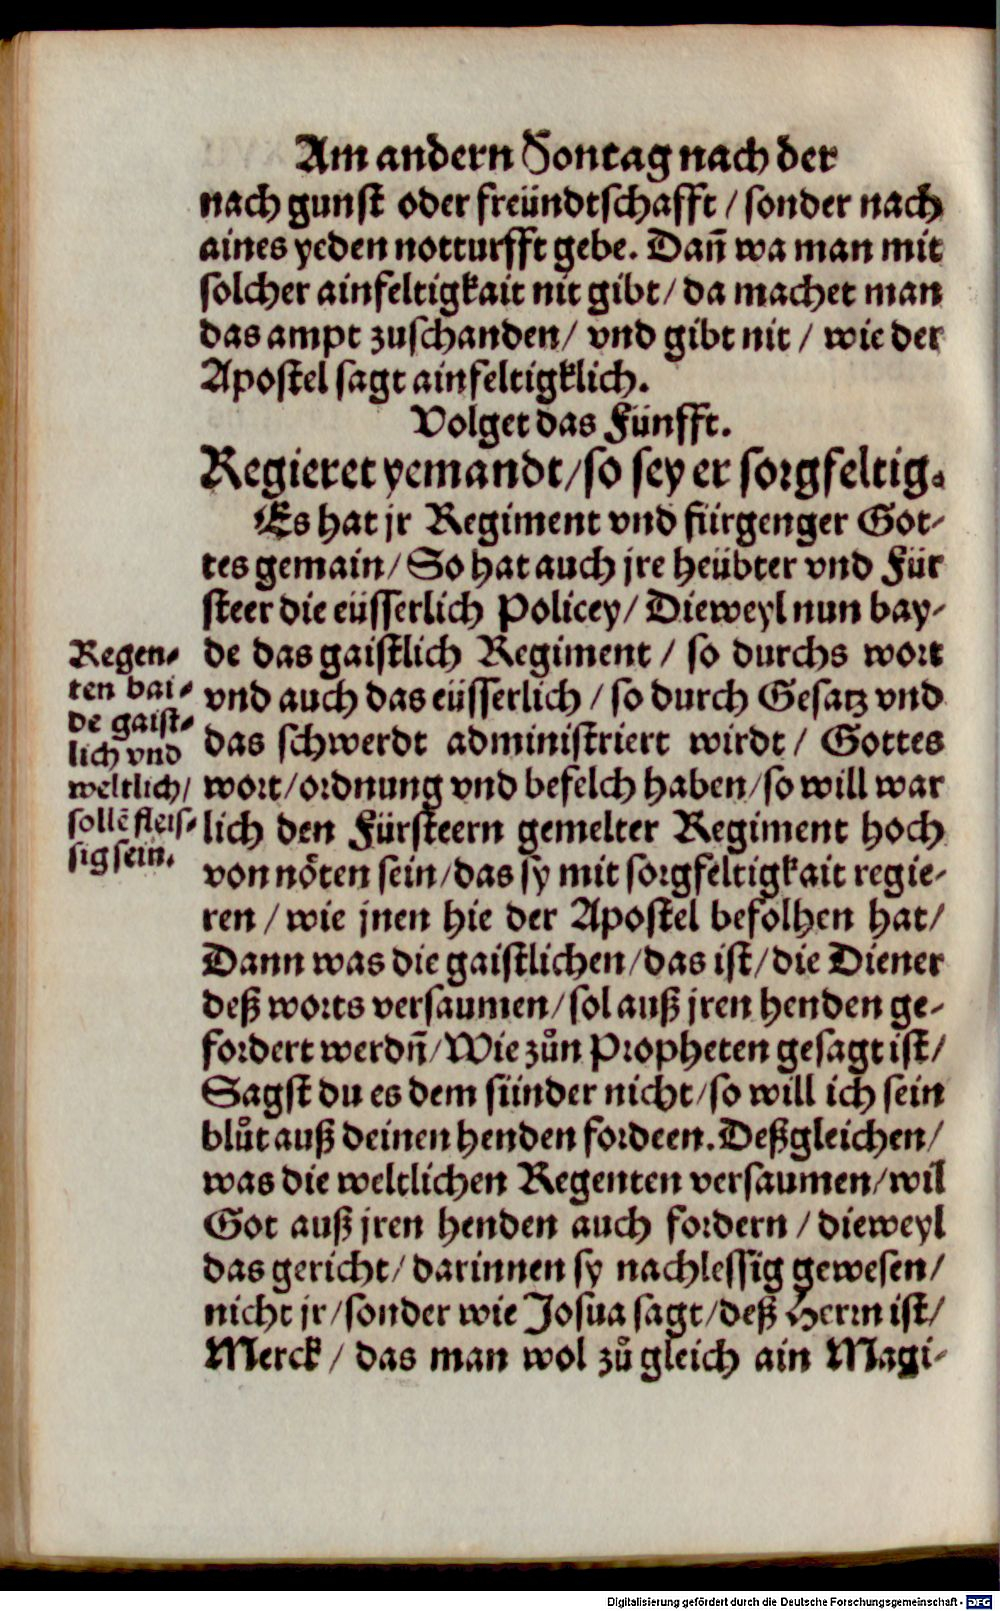 Am andern Sontag nach der
nach gunst oder freündtschafft / sonder nach
aines yeden notturfft gebe. Dañ wa man mit
solcher ainfeltigkait nit gibt / da machet man
das ampt zuschanden / vnd gibt nit / wie der
Apostel sagt ainfeltigklich.
Volget das Fünfft.
Regieret yemandt / so sey er sorgfeltig.
Es hat jr Regiment vnd fürgenger Got-
tes gemain / So hat auch jre heübter vnd Für
steer die eüsserlich Policey / Dieweyl nun bay-
de das gaistlich Regiment / so durchs wort
vnd auch das eüsserlich / so durch Gesatz vnd
das schwerdt administriert wirdt / Gottes
wort / ordnung vnd befelch haben / so will war
lich den Fürsteern gemelter Regiment hoch
von nöten sein / das sy mit sorgfeltigkait regie-
ren / wie jnen hie der Apostel befolhen hat /
Dann was die gaistlichen / das ist / die Diener
deß worts versaumen / sol auß jren henden ge-
fordert werdñ / Wie zůn Propheten gesagt ist /
Sagst du es dem sünder nicht / so will ich sein
blůt auß deinen henden fordeen. Deßgleichen /
was die weltlichen Regenten versaumen / wil
Got auß jren henden auch fordern / dieweyl
das gericht / darinnen sy nachlessig gewesen /
nicht jr / sonder wie Josua sagt / deß Herrn ist /
Merck / das man wol zů gleich ain Magi-
Regen-
ten bai-
de gaist-
lich vnd
weltlich /
sollē fleis-
sig sein.
Digitalisierung gefördert durch die Deutsche Forschungsgemeinschaft - DFG